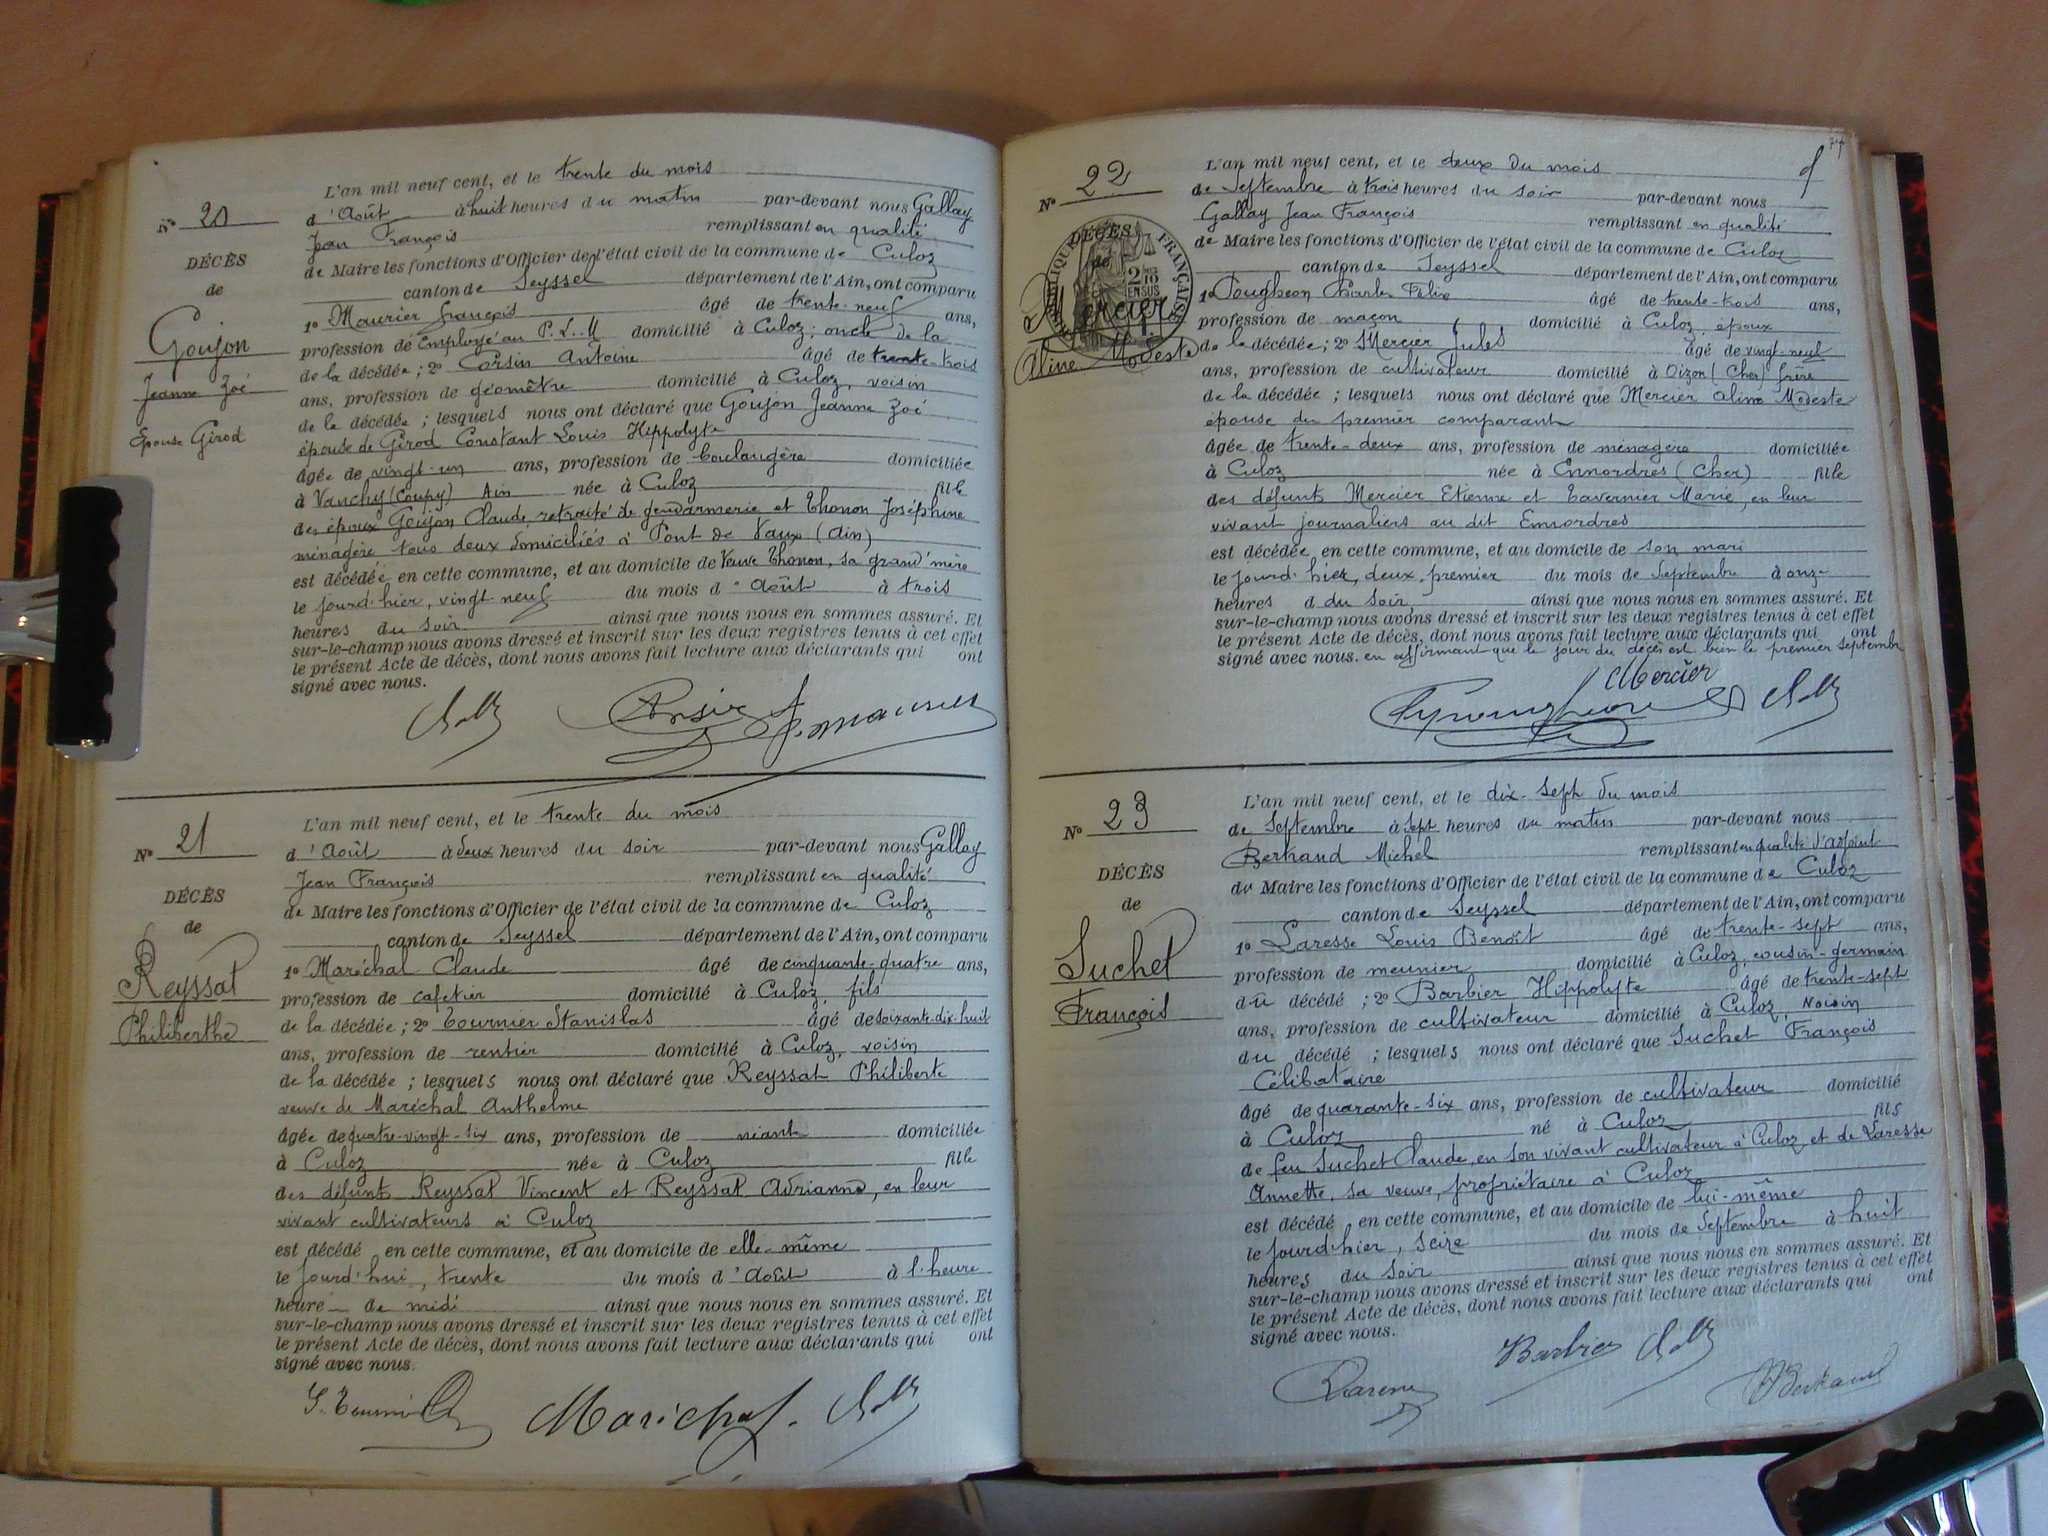 N° 20
DÉCÈS
de
Goujon
Jeanne Zoé
Épouse Girod
L'an mil neuf cent, et le trente du mois
d'Août à huit heures du matin par-devant nous Gallay
Jean François remplissant en qualité
de Maire les fonctions d'Officier de l'état civil de la commune de Culoz
canton de Seyssel département de l'Ain, ont comparu
1° Maurier françois âgé de trente-neuf ans,
profession de Employé au P.L.M domicilié à Culoz, oncle de la
de la décédée; 2° Corsin Antoine âgé de trente-trois
ans, profession de géomètre domicilié à Culoz, voisin
de la décédée; lesquels nous ont déclaré que Goujon Jeanne Zoé
épouse de Girod Constant Louis Hippolyte
âgée de vingt-un ans, profession de boulangère domiciliée
à Vanchy (Coupy) Ain née à Culoz fille
des époux Goujon Claude, retraité de gendarmerie et Thonon Joséphine
ménagère tous deux domiciliés à Pont de Vaux (Ain)
est décédée en cette commune, et au domicile de Veuve Thonon, sa grand'mère
le jourd'hier, vingt-neuf du mois d'Août à trois
heures du soir ainsi que nous nous en sommes assuré. Et
sur-le-champ nous avons dressé et inscrit sur les deux registres tenus à cet effet
le présent Acte de décès, dont nous avons fait lecture aux déclarants qui ont
signé avec nous.
Corsin F. Maurier
N° 21
DÉCÈS
de
Reyssat
Philiberthe
L'an mil neuf cent, et le trente du mois
d'Août à deux heures du soir par-devant nous Gallay
Jean François remplissant en qualité
de Maire les fonctions d'Officier de l'état civil de la commune de Culoz
canton de Seyssel département de l'Ain, ont comparu
1° Maréchal Claude âgé de cinquante-quatre ans,
profession de cafetier domicilié à Culoz, fils
de la décédée; 2° Tournier Stanislas âgé de soixante-dix-huit
ans, profession de rentier domicilié à Culoz, voisin
de la décédée; lesquels nous ont déclaré que Reyssat Philiberte
veuve de Maréchal Anthelme
âgée de quatre-vingt-six ans, profession de néant domiciliée
à Culoz née à Culoz fille
des défunts Reyssat Vincent et Reyssat Adrianne, en leur
vivant cultivateurs à Culoz
est décédé en cette commune, et au domicile de elle-même
le jourd'hui, trente du mois d'Août à l'heure
heure de midi ainsi que nous nous en sommes assuré. Et
sur-le-champ nous avons dressé et inscrit sur les deux registres tenus à cet effet
le présent Acte de décès, dont nous avons fait lecture aux déclarants qui ont
signé avec nous.
S. Tournier Maréchal
N° 22
DÉCÈS
de
Mercier
Aline Modeste
L'an mil neuf cent, et le deux du mois
de Septembre à trois heures du soir par-devant nous
Gallay Jean François remplissant en qualité
de Maire les fonctions d'Officier de l'état civil de la commune de Culoz
canton de Seyssel département de l'Ain, ont comparu
1° Pougheon Charles Félix âgé de trente-trois ans,
profession de maçon domicilié à Culoz, époux
de la décédée; 2° Mercier Jules âgé de vingt-neuf
ans, profession de cultivateur domicilié à Oizon (Cher) frère
de la décédée; lesquels nous ont déclaré que Mercier Aline Modeste
épouse du premier comparant
âgée de trente-deux ans, profession de ménagère domiciliée
à Culoz née à Ennordres (Cher) fille
des défunts Mercier Etienne et Tavernier Marie, en leur
vivant journaliers au dit Ennordres
est décédée en cette commune, et au domicile de son mari
le jourd'hier, deux, premier du mois de Septembre à onze
heures d du soir, ainsi que nous nous en sommes assuré. Et
sur-le-champ nous avons dressé et inscrit sur les deux registres tenus à cet effet
le présent Acte de décès, dont nous avons fait lecture aux déclarants qui ont
signé avec nous. en affirmant que le jour du décès est bien le premier septembre
Mercier
N° 23
DÉCÈS
de
Suchet
François
L'an mil neuf cent, et le dix-sept du mois
de Septembre à sept heures du matin par-devant nous
Bertrand Michel remplissant en qualité d'adjoint
du Maire les fonctions d'Officier de l'état civil de la commune de Culoz
canton de Seyssel département de l'Ain, ont comparu
1° Laresse Louis Benoît âgé de trente-sept ans,
profession de meunier domicilié à Culoz, cousin-germain
du décédé; 2° Barbier Hippolyte âgé de trente-sept
ans, profession de cultivateur domicilié à Culoz, voisin
du décédé; lesquels nous ont déclaré que Suchet François
Célibataire
âgé de quarante-six ans, profession de cultivateur domicilié
à Culoz né à Culoz fils
de feu Suchet Claude, en son vivant cultivateur à Culoz et de Laresse
Annette, sa veuve, propriétaire à Culoz
est décédé en cette commune, et au domicile de lui-même
le jourd'hier, seize du mois de Septembre à huit
heures du soir ainsi que nous nous en sommes assuré. Et
sur-le-champ nous avons dressé et inscrit sur les deux registres tenus à cet effet
le présent Acte de décès, dont nous avons fait lecture aux déclarants qui ont
signé avec nous.
Barbier
Bertrand